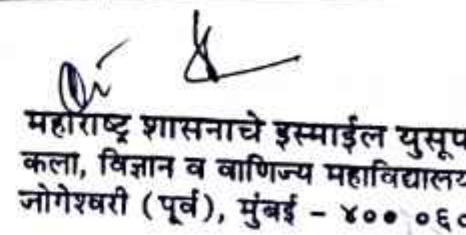 महाराष्ट्र शासनाचे इस्माईल युसूफ
कला, विज्ञान व वाणिज्य महाविद्यालय
जोगेश्वरी (पूर्व), मुंबई - ४०० ०६०